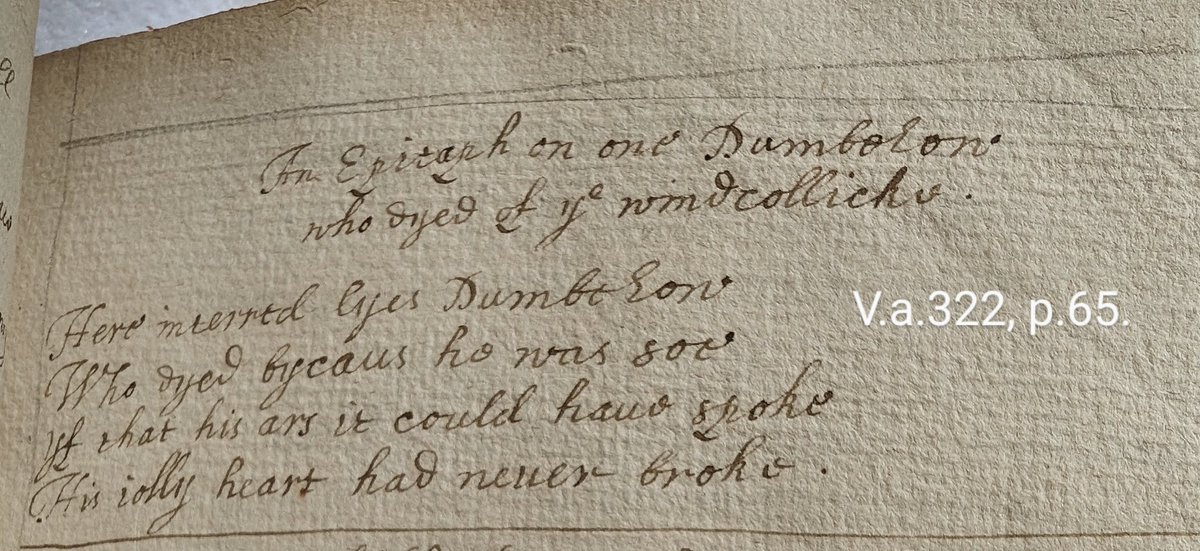 An Epitaph on one Dumbelow
who dyed of yᵉ windcollicke .
Here interred lyes Dumbelow
Who dyed bycaus he was soe
yf that his ars it could haue spoke
His iolly heart had neuer broke .
V.a.322, p.65.